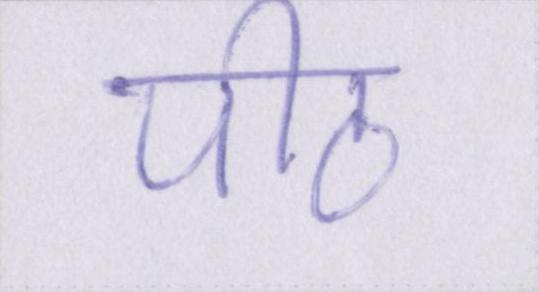 पीठ